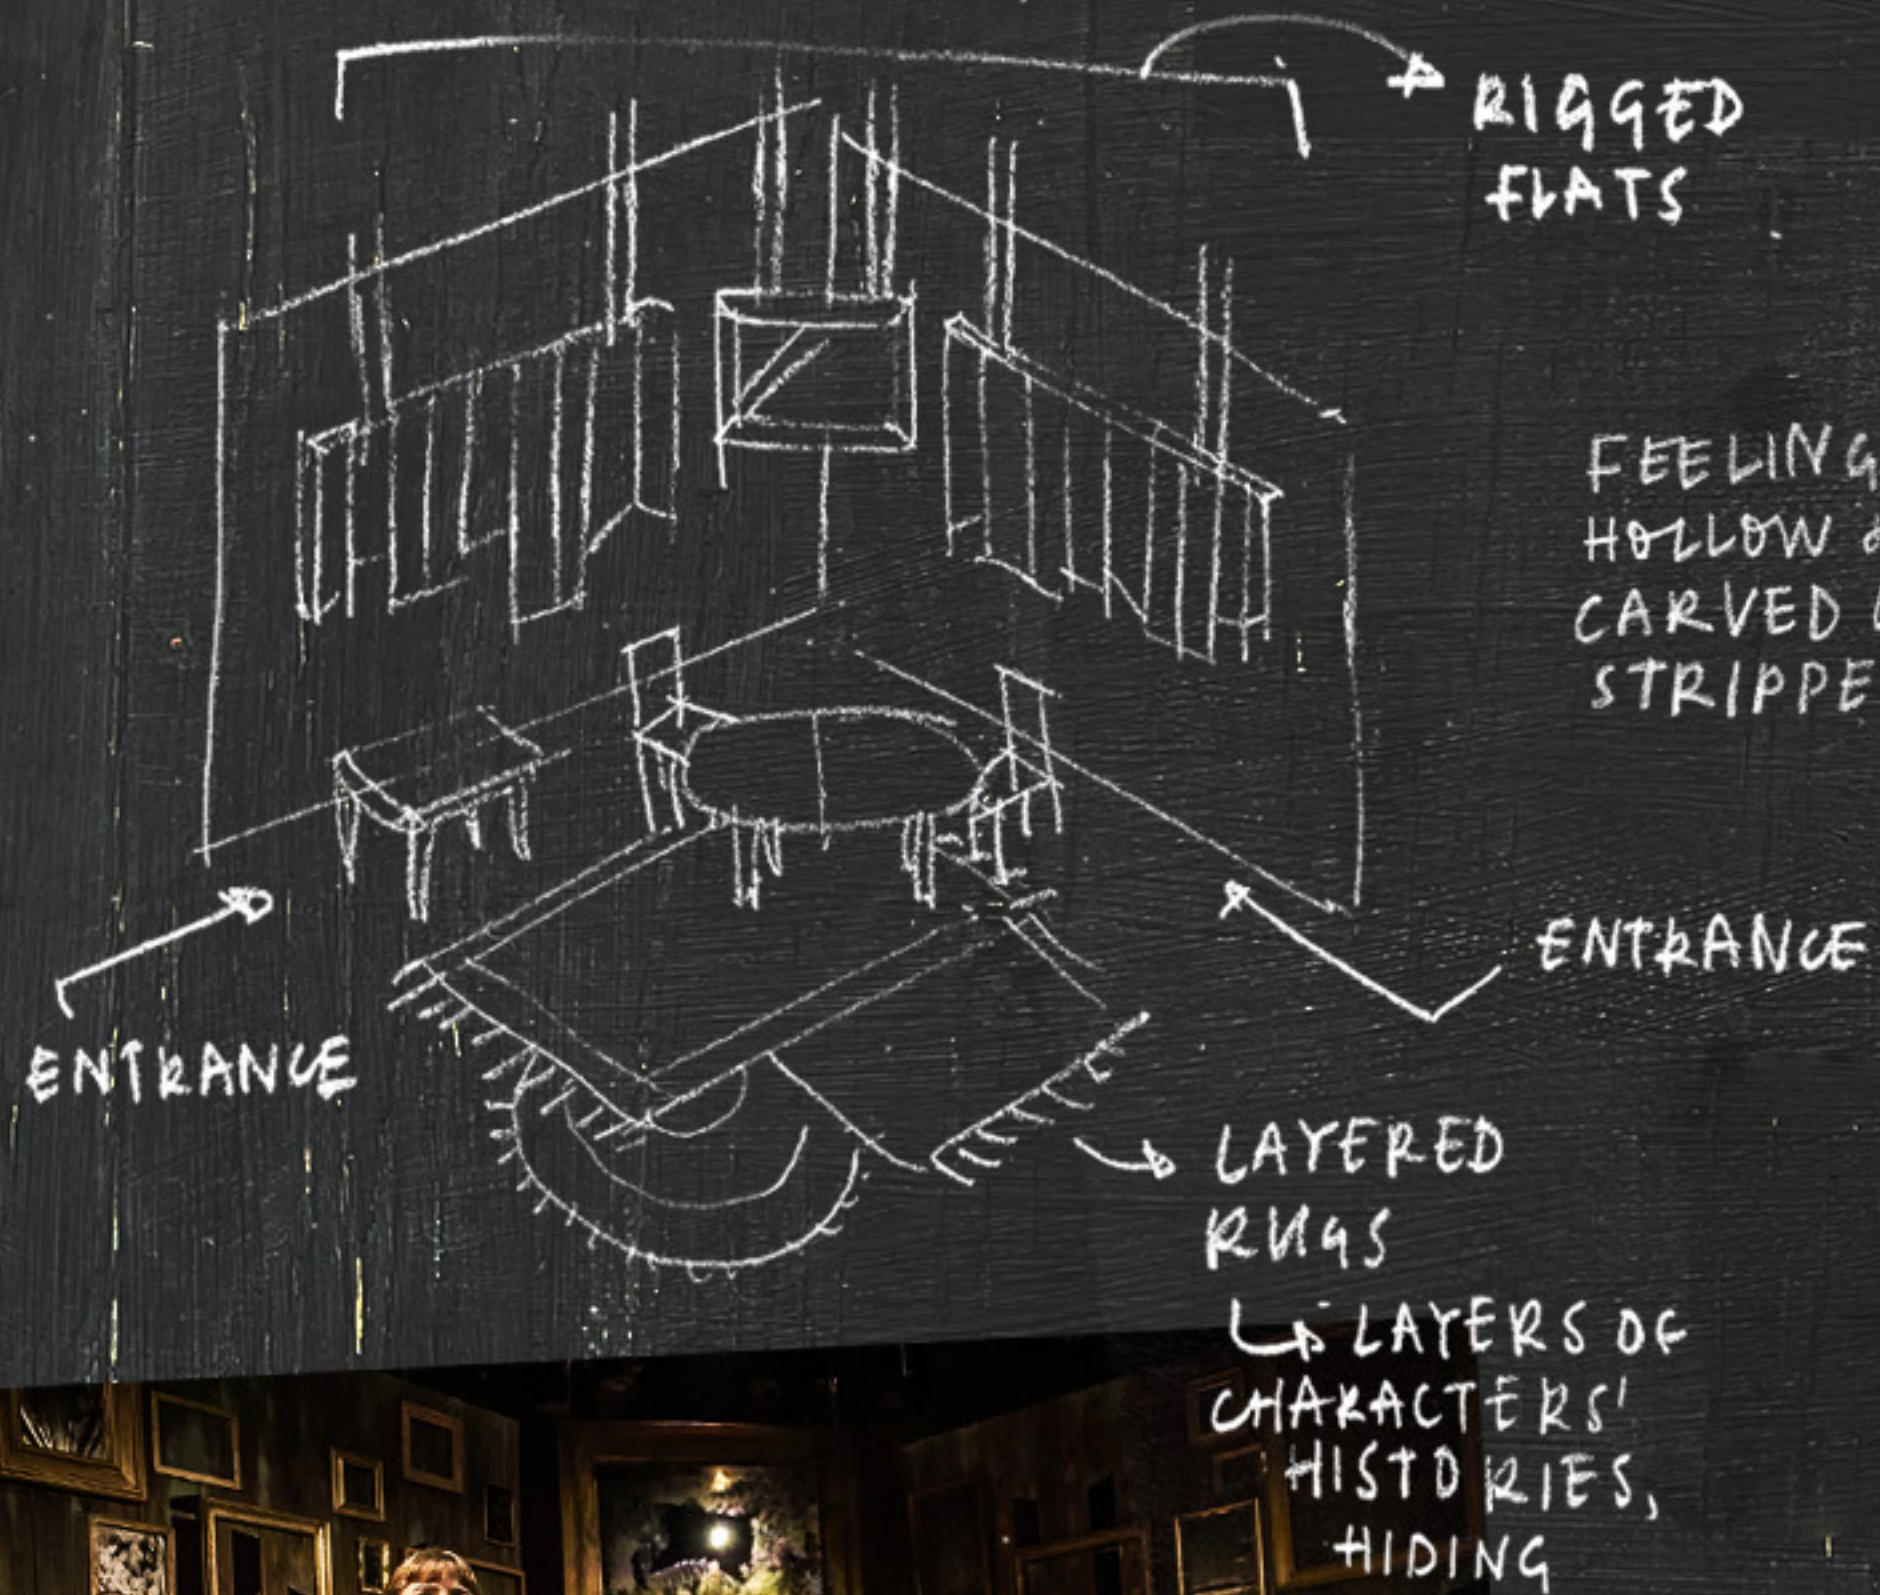 RIGGED
FLATS
FEELING
HOLLOW &
CARVED
STRIPPE
ENTRANCE
ENTRANCE
LAYERED
RUGS
LAYERS OF
CHARACTERS'
HISTORIES,
HIDING